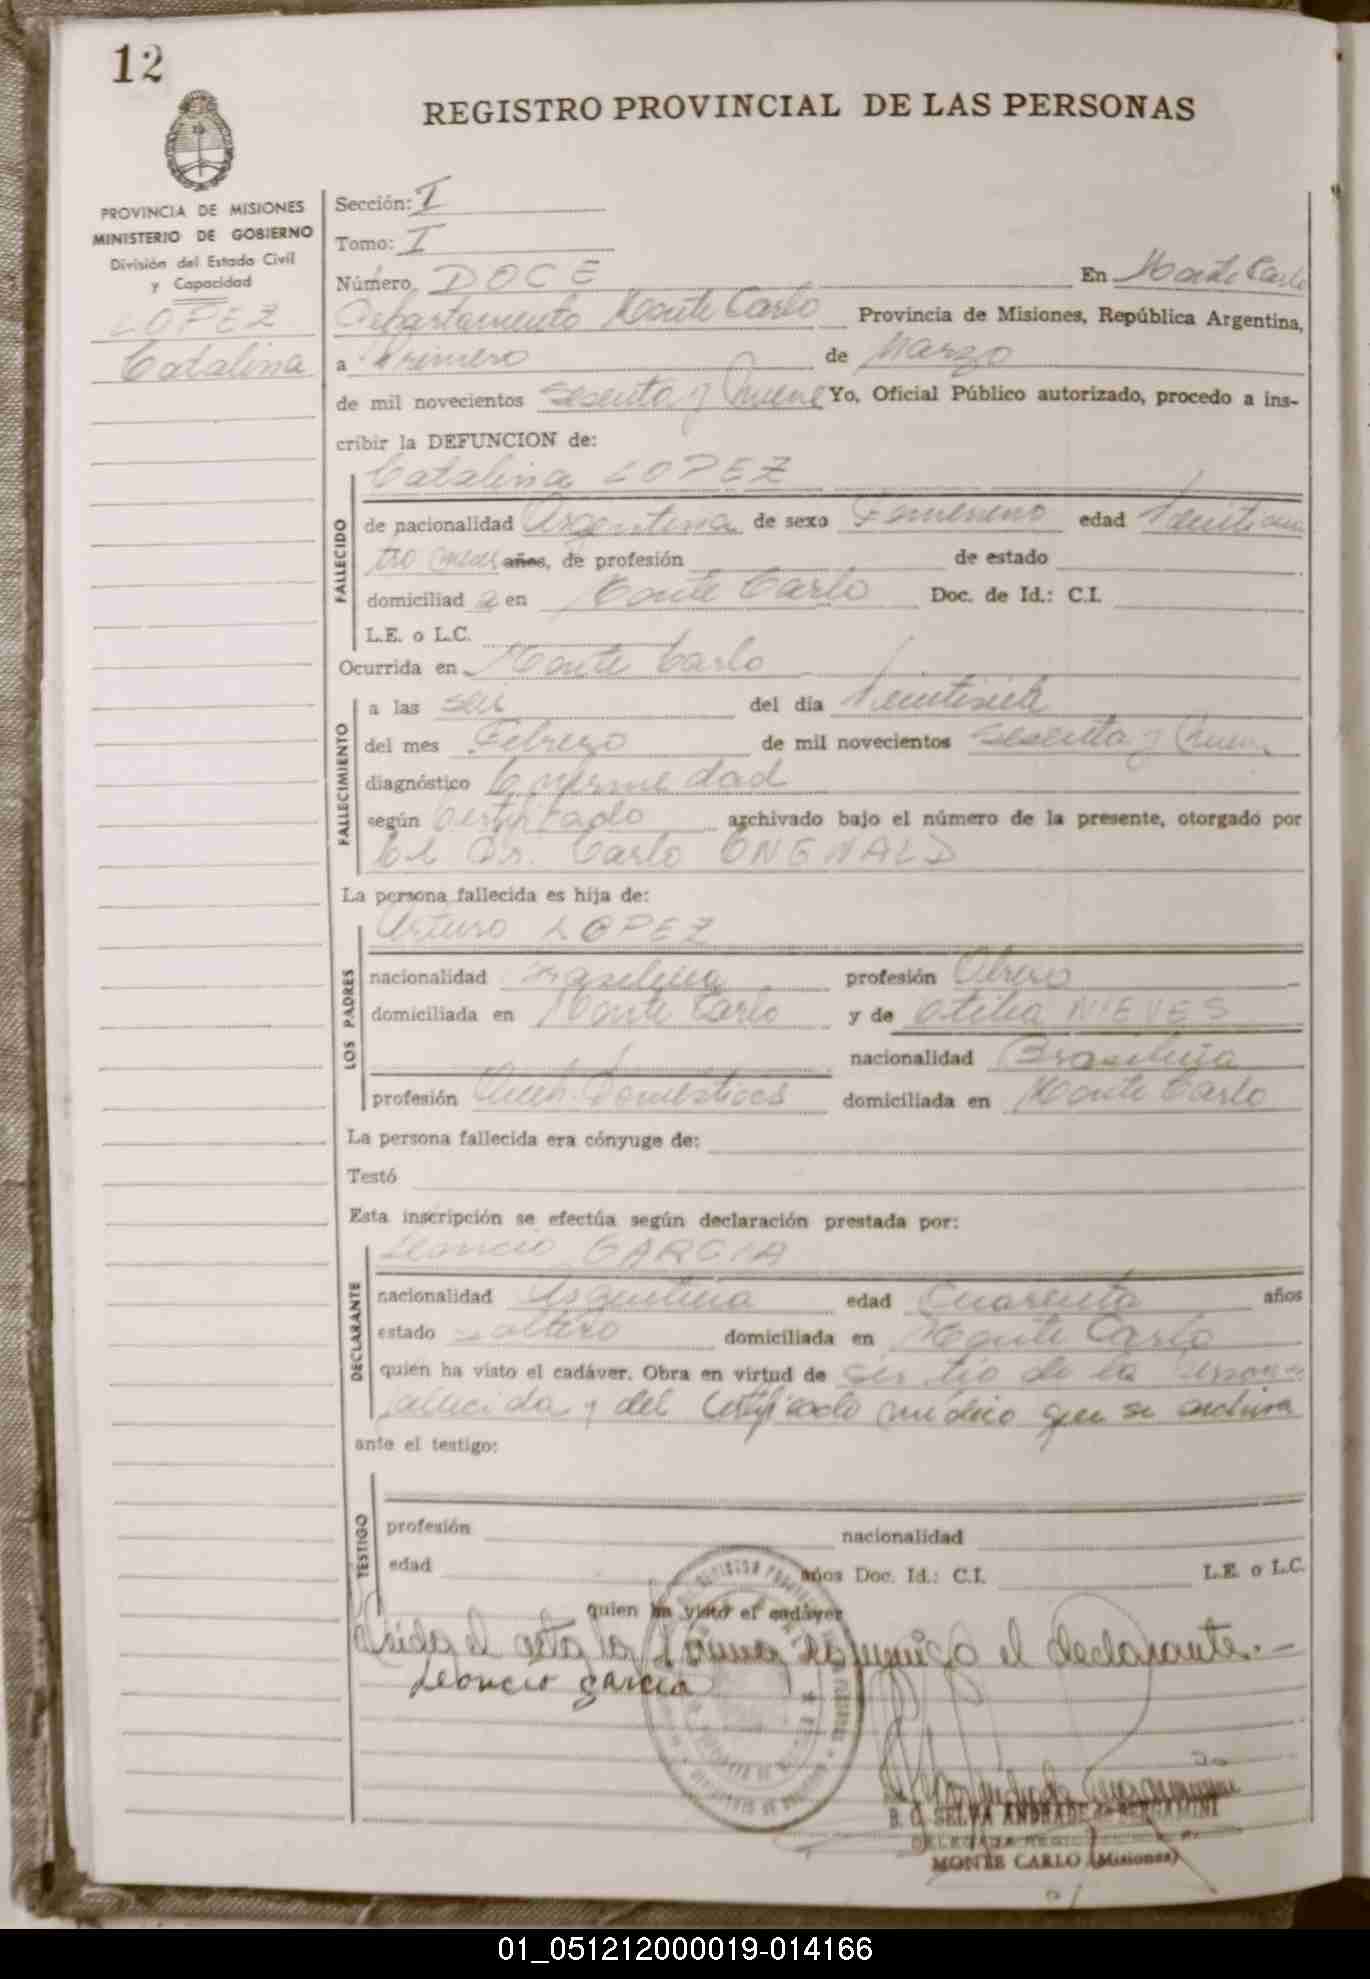 12
REGISTRO PROVINCIAL DE LAS PERSONAS
PROVINCIA DE MISIONES
MINISTERIO DE GOBIERNO
División del Estado Civil
y Capacidad
LOPEZ
Catalina
Sección: I
Tomo: I
Número DOCE En Monte Carlo
Departamento Monte Carlo Provincia de Misiones, República Argentina,
a Primero de Marzo
de mil novecientos sesenta y nueve Yo, Oficial Público autorizado, procedo a ins-
cribir la DEFUNCION de:
Catalina LOPEZ
FALLECIDO
de nacionalidad Argentina de sexo Femenino edad Veinticua
tro meses años, de profesión de estado
domiciliad a en Monte Carlo Doc. de Id.: C.I.
L.E. o L.C.
Ocurrida en Monte Carlo
FALLECIMIENTO
a las seis del día Veintisiete
del mes Febrero de mil novecientos sesenta y nueve
diagnóstico Enfermedad
según Certificado archivado bajo el número de la presente, otorgado por
El Dr. Carlo
La persona fallecida es hija de:
Arturo LOPEZ
LOS PADRES
nacionalidad Brasileña profesión Obrero
domiciliada en Monte Carlo y de Otilia NIEVES
nacionalidad Brasileña
profesión Queh. Domésticos domiciliada en Monte Carlo
La persona fallecida era cónyuge de:
Testó
Esta inscripción se efectúa según declaración prestada por:
Leoncio GARCIA
DECLARANTE
nacionalidad Argentina edad Cuarenta años
estado soltero domiciliada en Monte Carlo
quien ha visto el cadáver. Obra en virtud de ser tio de la persona
fallecida y del certificado médico que se archiva
ante el testigo:
TESTIGO
profesión nacionalidad
edad años Doc. Id.: C.I. L.E. o L.C.
quien ha visto el cadáver
Leida el acta la firma conmigo el declarante.-
Leoncio garcia
B. G. SELVA ANDRADE de BERGAMINI
MONTE CARLO (Misiones)
01_051212000019-014166